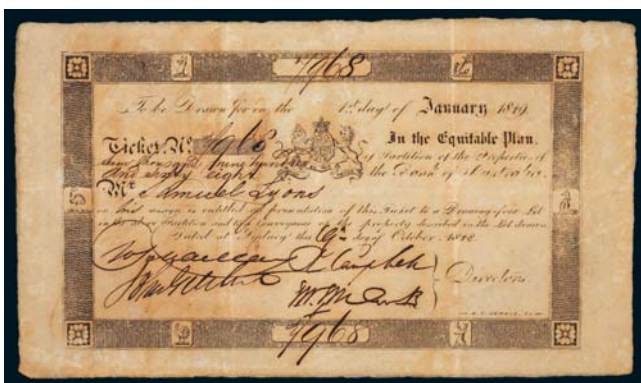 7968
To be Drawn for on the 1st day of January 1849
Ticket, No. 7968 In the Equitable Plan,
seven thousand nine hundred of Partition of the Properties of
and sixty eight the Bank of Australia.
Mr. Samuel Lyons
or his assign is entitled on presentation of this Ticket to a Drawing of one Lot
in the above Partition and to a Conveyance of the property described in the Lot drawn.
Dated at Sydney this day of October 1848.
Campbell
Directors.
7968